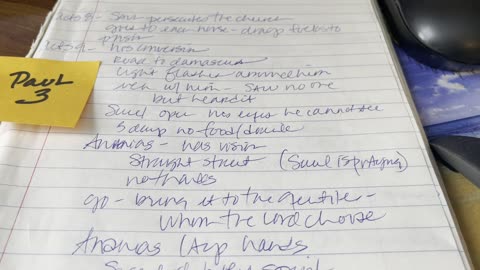 Acts 8 - Saul persecutes the church
goes to each house - drags to
prison
Acts 9 - his conversion
Road to damascus
light flashes around him
men w/ him - saw no one
but heard it
Saul open his eyes he cannot see
3 days no food/drink
Ananias - has vision
Straight street (Saul is praying)
go - bring it to the gentile -
whom the Lord choose
Ananias lay hands
Paul
3